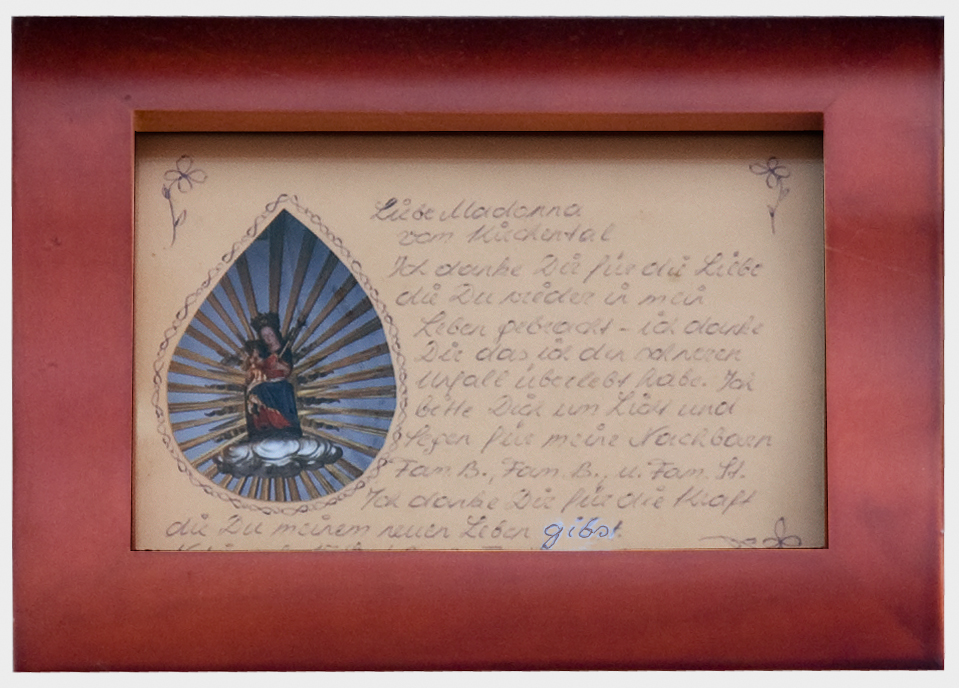 Liebe Madonna
vom Kirchental
Ich danke Dir für die Liebe
die Du wieder in mein
Leben gebracht - ich danke
Dir das ich den schweren
Unfall überlebt habe. Ich
bitte Dich um Licht und
Segen für meine Nachbarn
Fam. B., Fam. B., u. Fam. St.
Ich danke Dir für die Kraft
die Du meinem neuen Leben gibst.